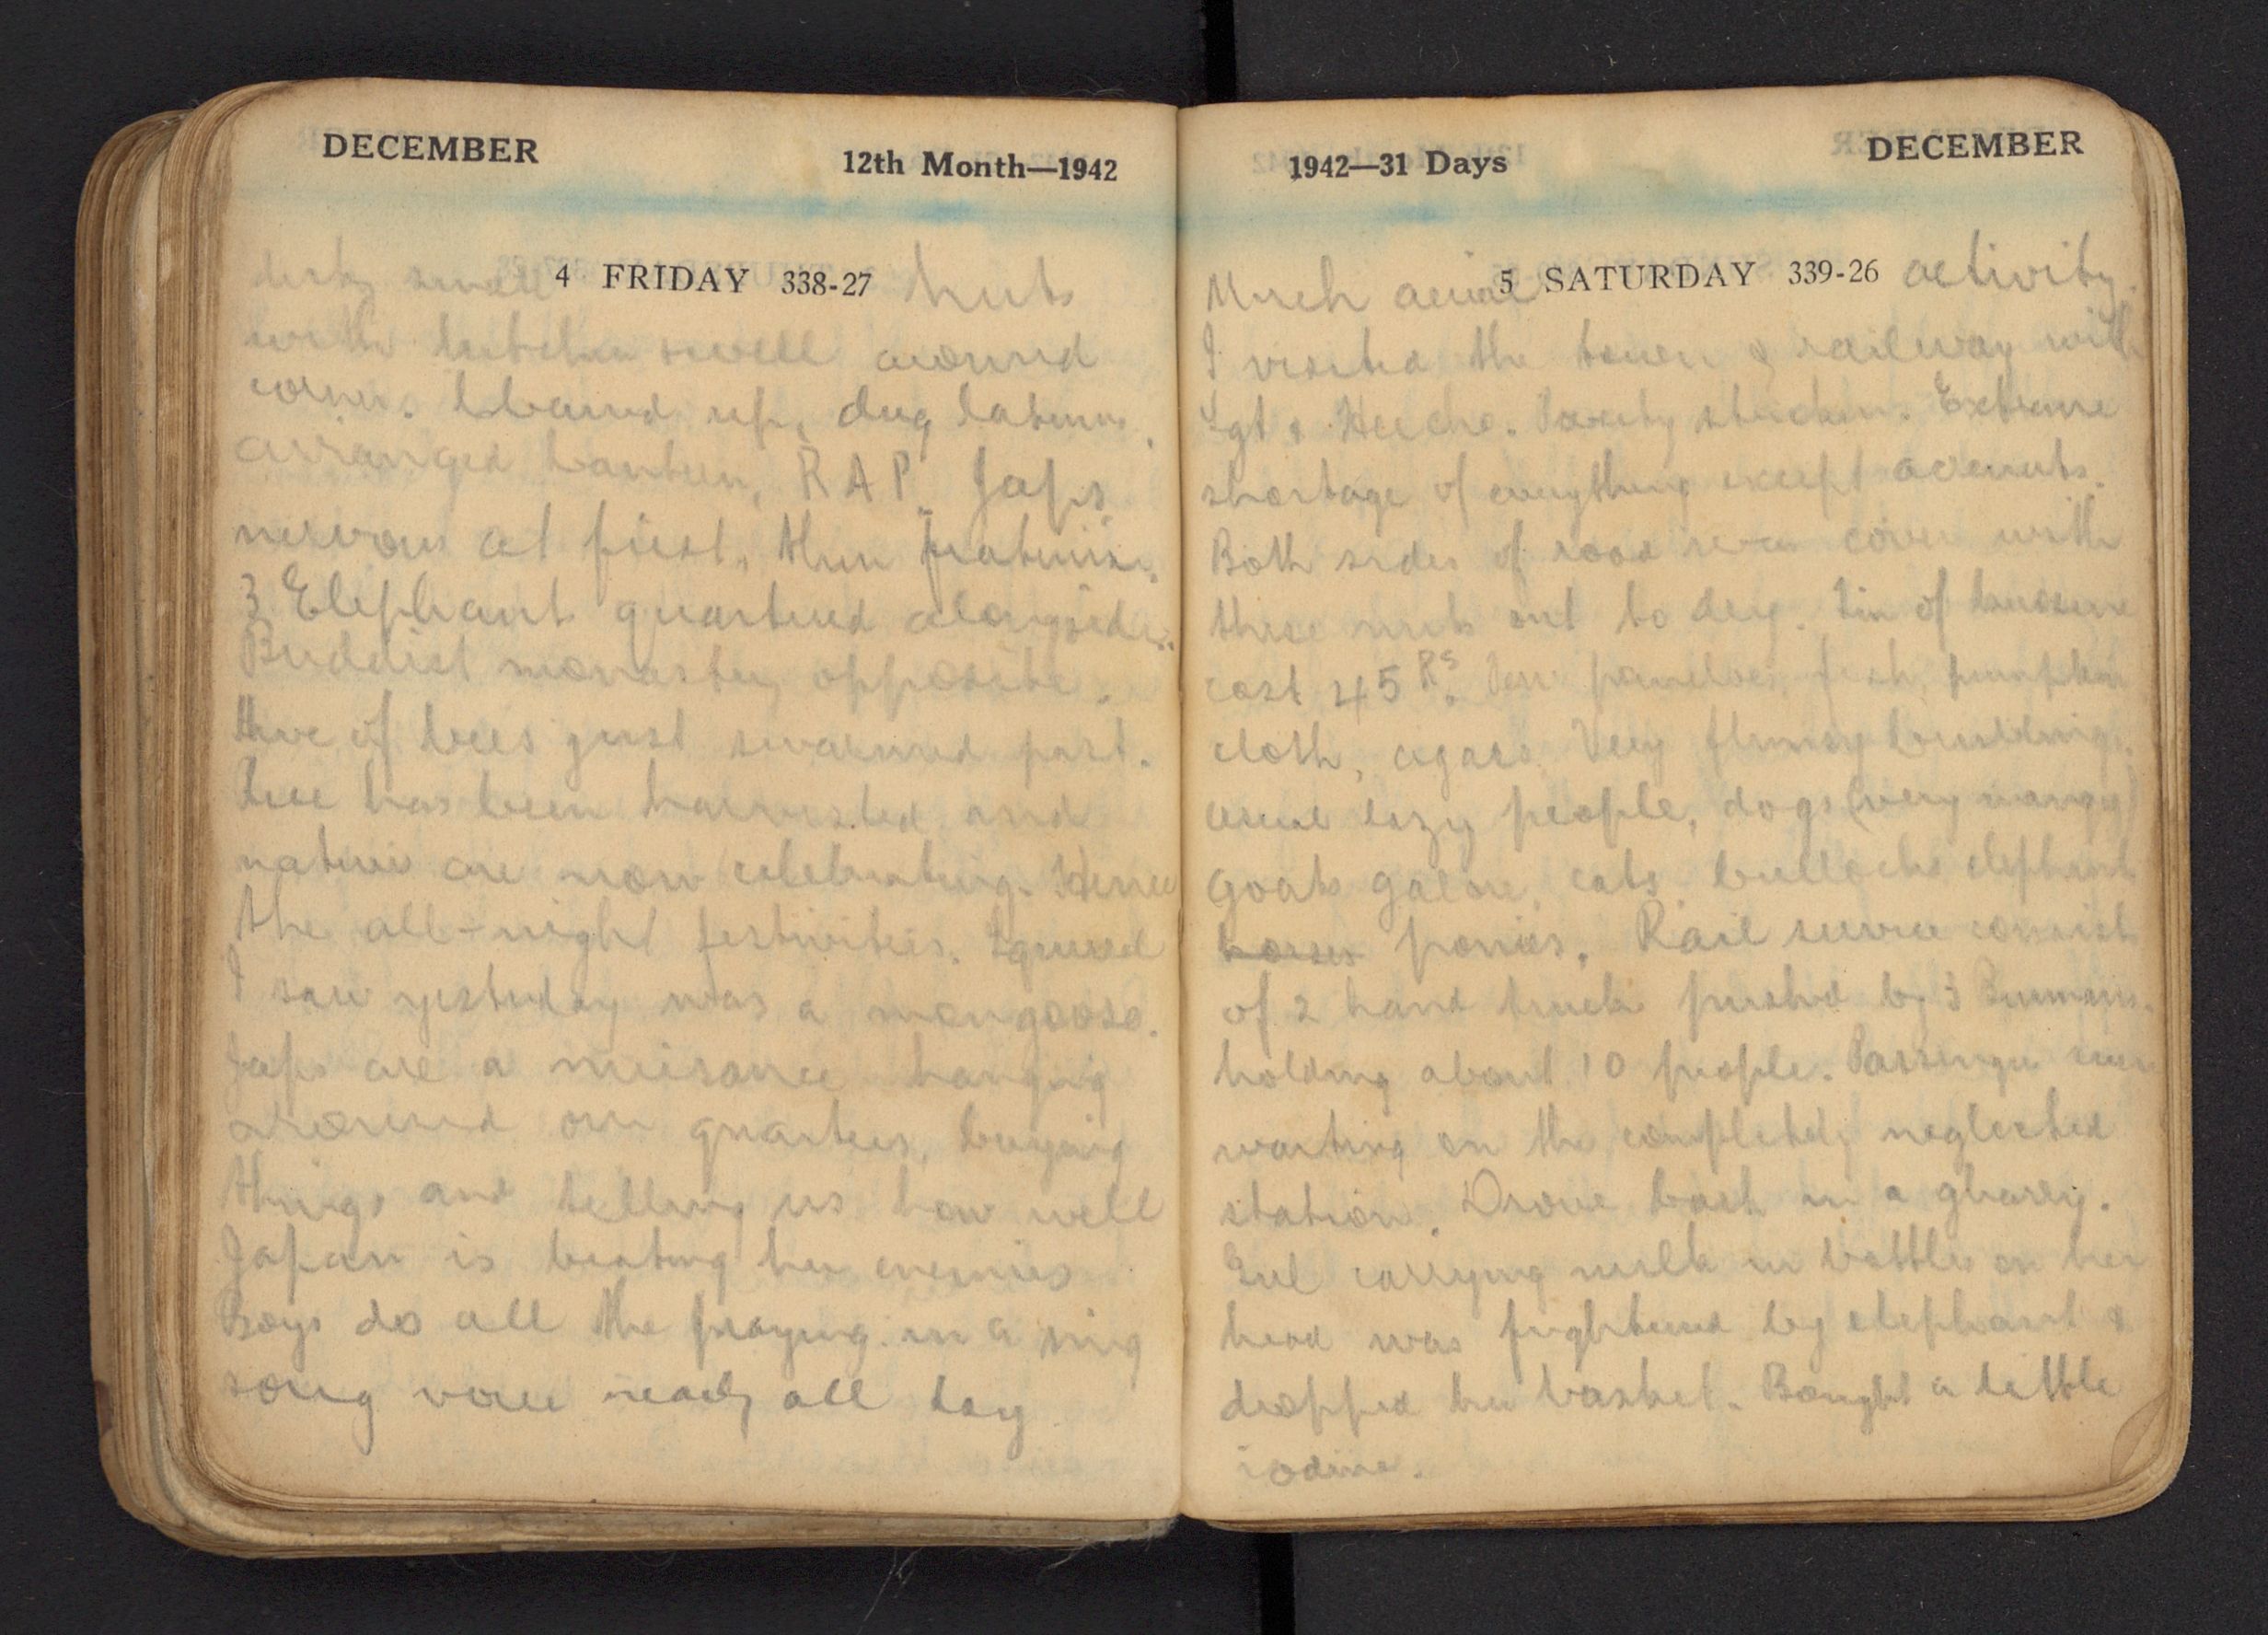 DECEMBER
12th Month—1942
4 FRIDAY 338-27
dirty small huts
with kitchen & well around
corner. Cleaned up, dug latrines,
arranged canteen, RAP. Japs
nervous at first, then fraternise.
3 Elephant quartered alongside.
Buddist monastery opposite.
Hive of bees just swarmed past.
Rice has been harvested and
natives are now celebrating. Hence
the all-night festivities. Squirrel
I saw yesterday was a mongoose.
Japs are a nuisance hanging
around our quarters, buying
things and telling us how well
Japan is beating her enemies
Boys do all the praying in a sing
song voice nearly all day
1942—31 Days
DECEMBER
5 SATURDAY 339-26
Much aerial activity.
I visited the town & railway with
Sgt. Poverty stricken. Extreme
shortage of everything except
Both sides of road cover with
these nuts out to dry. Tin of kerosene
cost 45 Rs. fish, pumpkin
cloth, cigars. Very flimsy buildings.
usual lazy people, dogs (very mangy)
goats galore, cats bullocks elephants
horses ponies. Rail service consists
of 2 hand trucks pushed by 3 Burmans.
holding about 10 people. Passengers were
waiting on the completely neglected
station. Drove back in a gharry.
Girl carrying milk in bottles on her
head was frightened by elephant &
dropped her basket. Bought a little
iodine.